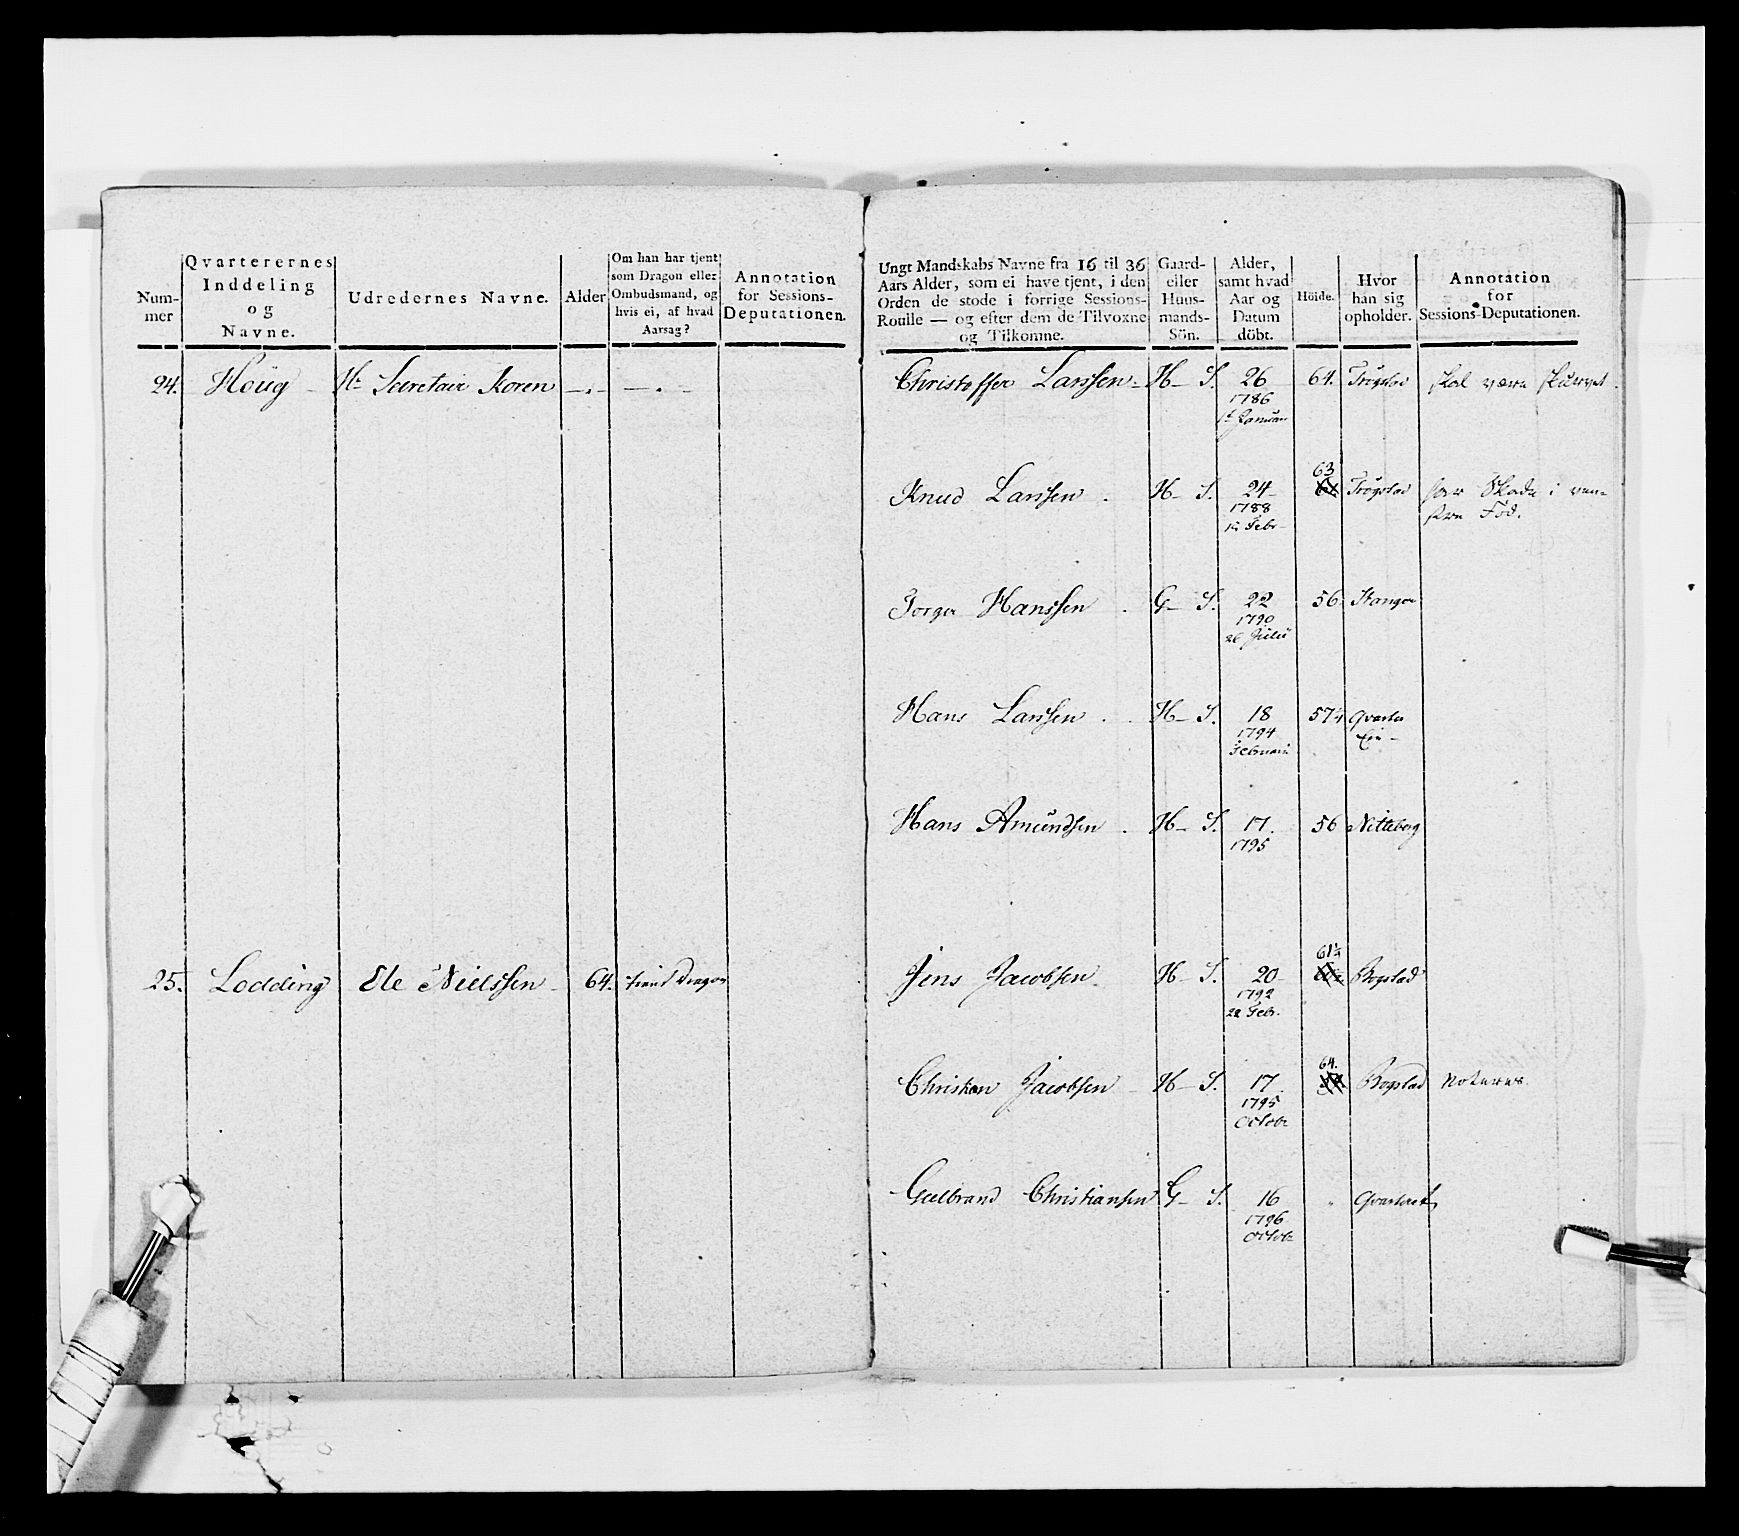 Num-
mer
Qvarterernes
Inddeling
og
Navne.
Udredernes Navne.
Alder
Om han har tjent
som Dragon eller
Ombudsmand, og
hvis ei, af hvad
Aarsag?
Annotation
for Sessions-
Deputationen.
Ungt Mandskabs Navne fra 16 til 36
Aars Alder, som ei have tjent, i den
Orden de stode i forrige Sessions-
Roulle — og efter dem de Tilvoxne
og Tilkomne.
Gaard-
eller
Huus-
mands-
Sön.
Alder,
samt hvad
Aar og
Datum
döbt.
Höide.
Hvor
han sig
opholder.
Annotation
for
Sessions-Deputationen.
24. Höüg Hr Secretair Koren
Christoffer Larssen H- S. 26 64. Trögstad skal være skurvet.
1786
Januari
63
Knud Larssen H- S. 24 Trögstad har Skade i ven-
1788 stre Fod.
Febr
Hanssen G- S. 22 56 Stangen
1790
26 Julii
Hans Larssen H- S. 18 57½ Qvarter
1794
Februari
Hans Amundsen H- S. 17 56 Nitteberg
1795
61½
25. Lodding Ole Nielssen 64. tient Dragon Jens Jacobsen H- S. 20 Bogstad
1792
22 Febr.
64.
Christian Jacobsen H- S. 17 Bogstad Noteres.
1795
Octobr
Gulbrand Christiansen G- S. 16 Qvarteret
1796
Octobr